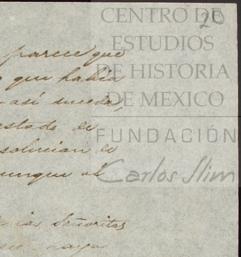 20
CENTRO DE
ESTUDIOS
DE HISTORIA
DE MEXICO
FUNDACIÓN
Carlos Slim
parece que
que había
así suceda,
estado de
solucion
aunque al
Señoritas